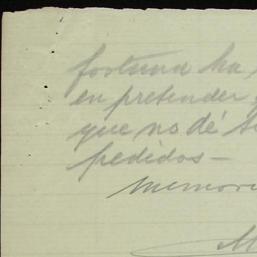 fortuna ha
en pretender
que no dé
pedidos—
Memori
M